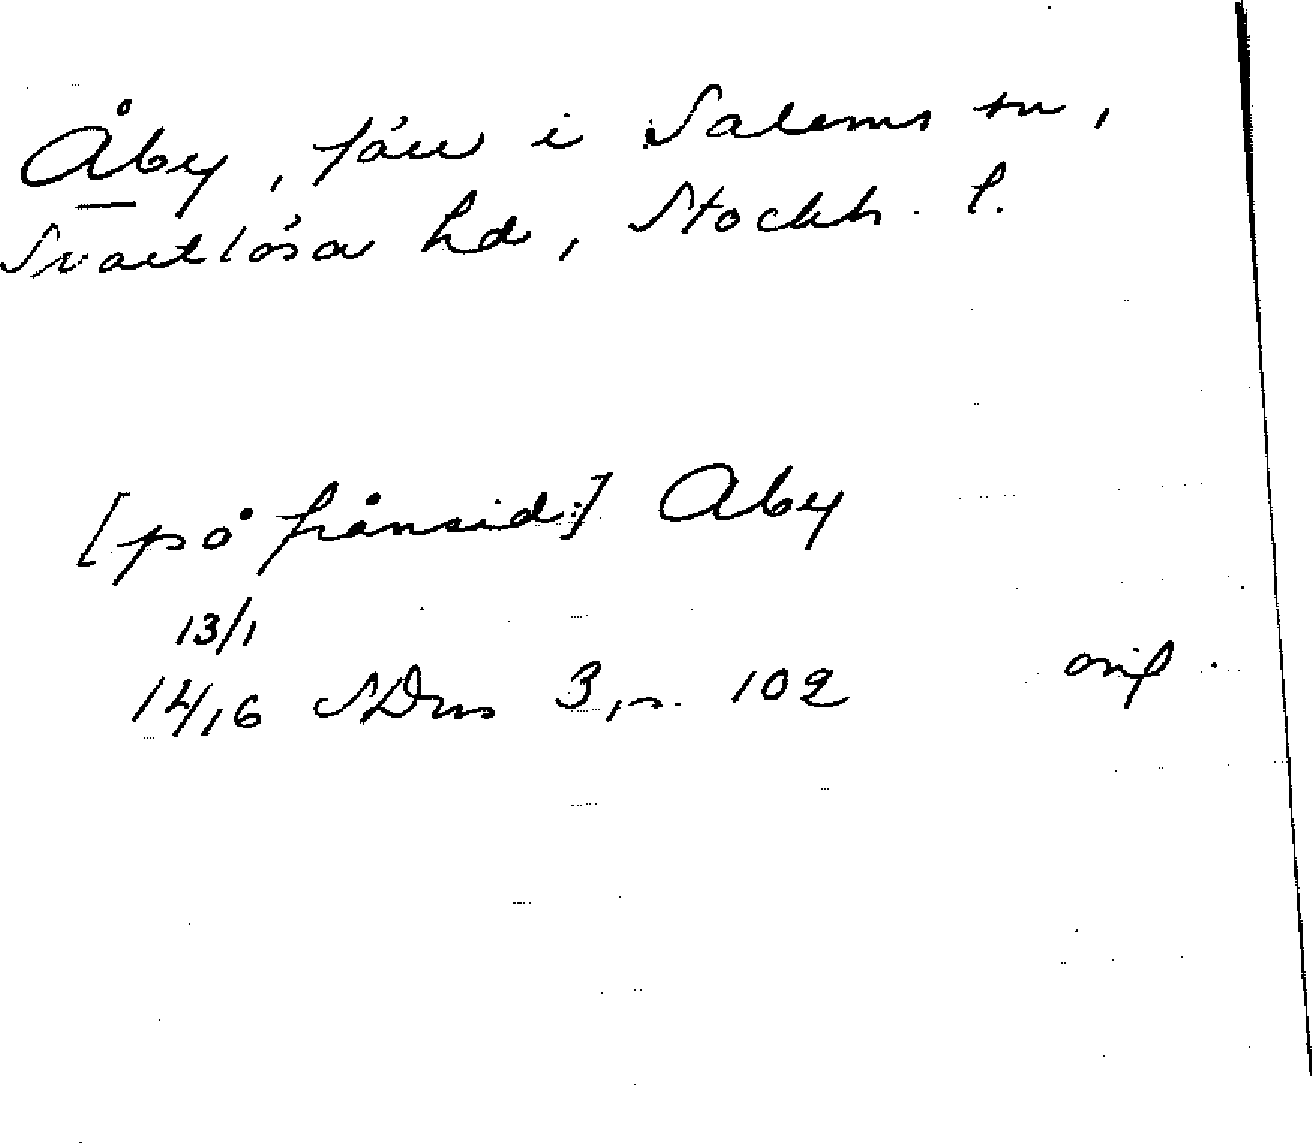 Åby, förr i Salems sn,
Svartlösa hd, Stockh. l.
[på frånsid:] Aby
13/1
1416 SDns 3, s. 102 orig.